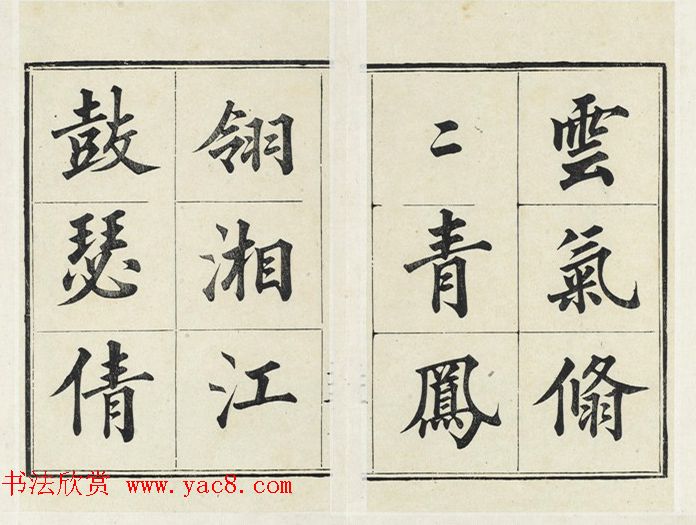 雲氣翛
二青鳳
翎湘江
鼓瑟倩
书法欣赏 www.yac8.com